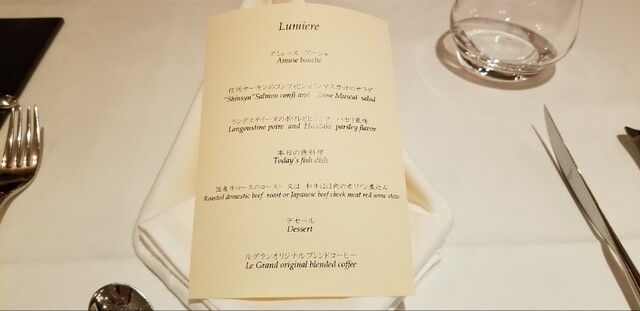 Lumiere
アミューズ ブーシュ
Amuse bouche
信州サーモンのコンフィとシャインマスカットのサラダ
"Shinsyu" Salmon confi and Shine Muscat salad
ラングスティーヌのポワレと パセリ風味
Langoustine poire and parsley flavor
本日の魚料理
Today's fish dish
国産牛ロースのロースト 又は 和牛ほほ肉の赤ワイン煮込み
Roasted domestic beef roast or Japanese beef cheek meat red wine stew
デセール
Dessert
ルグランオリジナルブレンドコーヒー
Le Grand original blended coffee